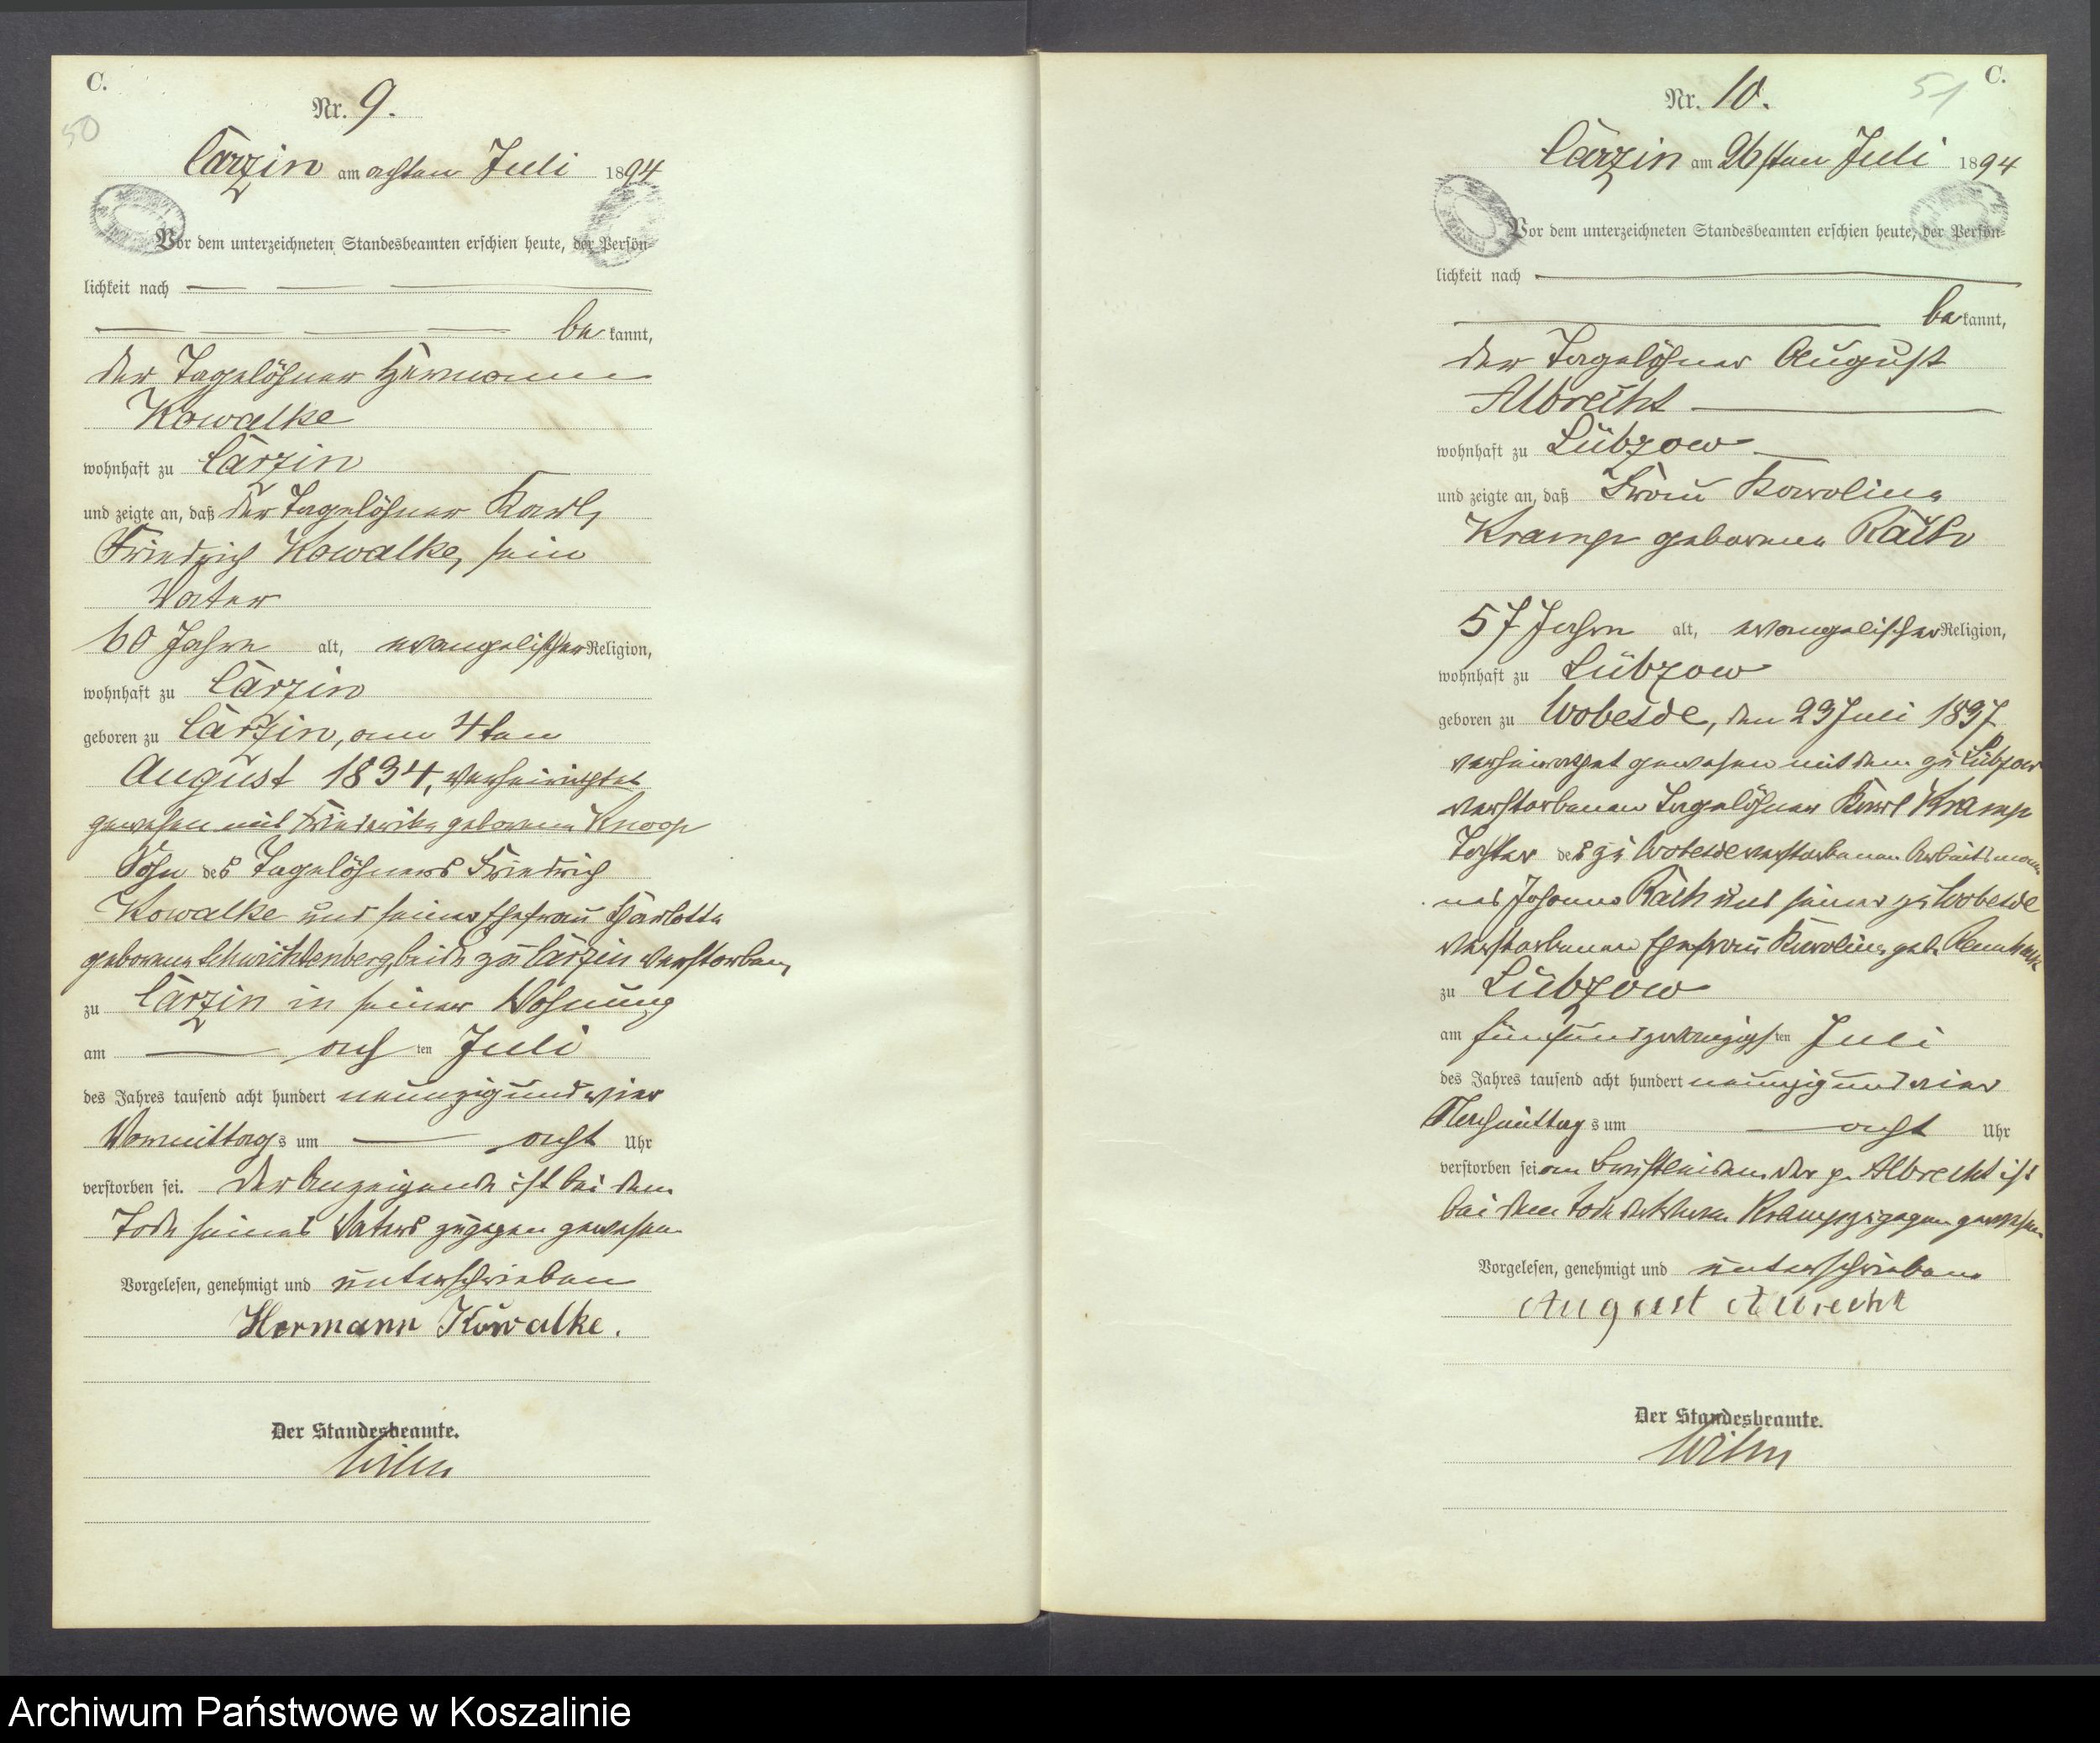 C.
50
Nr. 9.
Carzin am achten Juli 1894
Vor dem unterzeichneten Standesbeamten erschien heute, der Persön-
lichkeit nach
be kannt,
der Tagelöhner Hermann
Kowalke
wohnhaft zu Carzin
und zeigte an, daß der Tagelöhner Karl,
Friedrich Kowalke, sein
Vater
60 Jahre alt, evangelischer Religion,
wohnhaft zu Carzin
geboren zu Carzin, am 4ten
August 1834, verheirathet
gewesen mit Friederike geborene Knoop
Sohn des Tagelöhners Friedrich
Kowalke und seiner Ehefrau Charlotte
geborene Schwichtenberg, beide zu Carzin verstorben,
zu Carzin in seiner Wohnung
am ach ten Juli
des Jahres tausend acht hundert neunzig und vier
Vormittags um acht Uhr
verstorben sei. Der Anzeigende ist bei dem
Tode seines Vaters zugegen gewesen
Vorgelesen, genehmigt und unterschrieben
Hermann Kowalke.
Der Standesbeamte.
Wilm
C.
51
Nr. 10.
Carzin am 26sten Juli 1894
Vor dem unterzeichneten Standesbeamten erschien heute, der Persön-
lichkeit nach
be kannt,
der Tagelöhner August
Albrecht
wohnhaft zu Lübzow
und zeigte an, daß Frau Karoline
Kramp geborene Räth
57 Jahre alt, evangelischer Religion,
wohnhaft zu Lübzow
geboren zu Wobesde, den 29 Juli 1837
verheirathet gewesen mit dem zu Lübzow
verstorbenen Tagelöhner Karl Kramp
Tochter des zu Wobesde verstorbenen Arbeitsman
nes Johann Räth und seiner zu Wobesde
verstorbenen Ehefrau Karoline geb.
zu Lübzow
am fünfundzwanzigs ten Juli
des Jahres tausend acht hundert neunzig und vier
Nachmittags um acht Uhr
verstorben sei am Brustleiden. Der p. Albrecht ist
bei dem Tode der Kramp zugegen gewesen
Vorgelesen, genehmigt und unterschrieben
August Albrecht
Der Standesbeamte.
Wilm
Archiwum Państwowe w Koszalinie